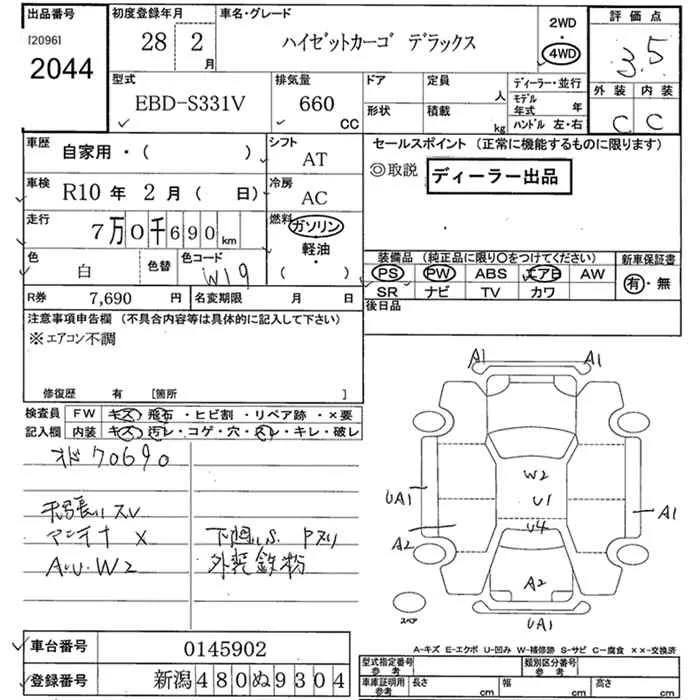 出品番号
[2096]
2044
初度登録年月
28 2 月
車名・グレード
ハイゼットカーゴ デラックス
2WD
・
4WD
評価点
3.5
外装 内装
C C
型式
EBD-S331V
排気量
660 CC
ドア
定員 人
形状
積載 kg
ディーラー・並行
モデル年式 年
ハンドル 左・右
車歴
自家用・( )
シフト
AT
セールスポイント (正常に機能するものに限ります)
◎取説 ディーラー出品
車検
R10 年 2 月 ( 日)
冷房
AC
走行
7万0千690km
燃料
ガソリン
・
軽油
・
( )
色
白
色替
色コード
W19
装備品 (純正品に限り〇をつけてください)
新車保証書
PS PW ABS エアB AW
有・無
SR ナビ TV カワ
R券 7,690 円
名変期限 月 日
後日品
注意事項申告欄 (不具合内容等は具体的に記入して下さい)
※エアコン不調
修復歴 有 [箇所 ]
検査員
記入欄
FW キズ・飛石・ヒビ割・リペア跡・×要
内装 キズ・汚レ・コゲ・穴・スレ・キレ・破レ
オド70690
天張りスレ
アンテナ ×
A・U・W2
下廻りS. Pスリ
外装鉄粉
A1 A1
W2
U1
UA1 A1
U4
A2
A2
スペア
UA1
A-キズ E-エクボ U-凹み W-補修跡 S-サビ C-腐食 ××-交換済
車台番号 0145902
登録番号 新潟480ぬ9304
型式指定番号 参考
類別区分番号 参考
車庫証明用 参考
長さ cm
幅 cm
高さ cm